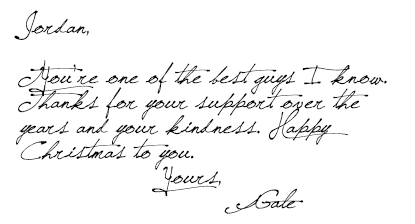 Jordan,
You're one of the best guys I know.
Thanks for your support over the
years and your kindness. Happy
Christmas to you.
Yours,
Gale